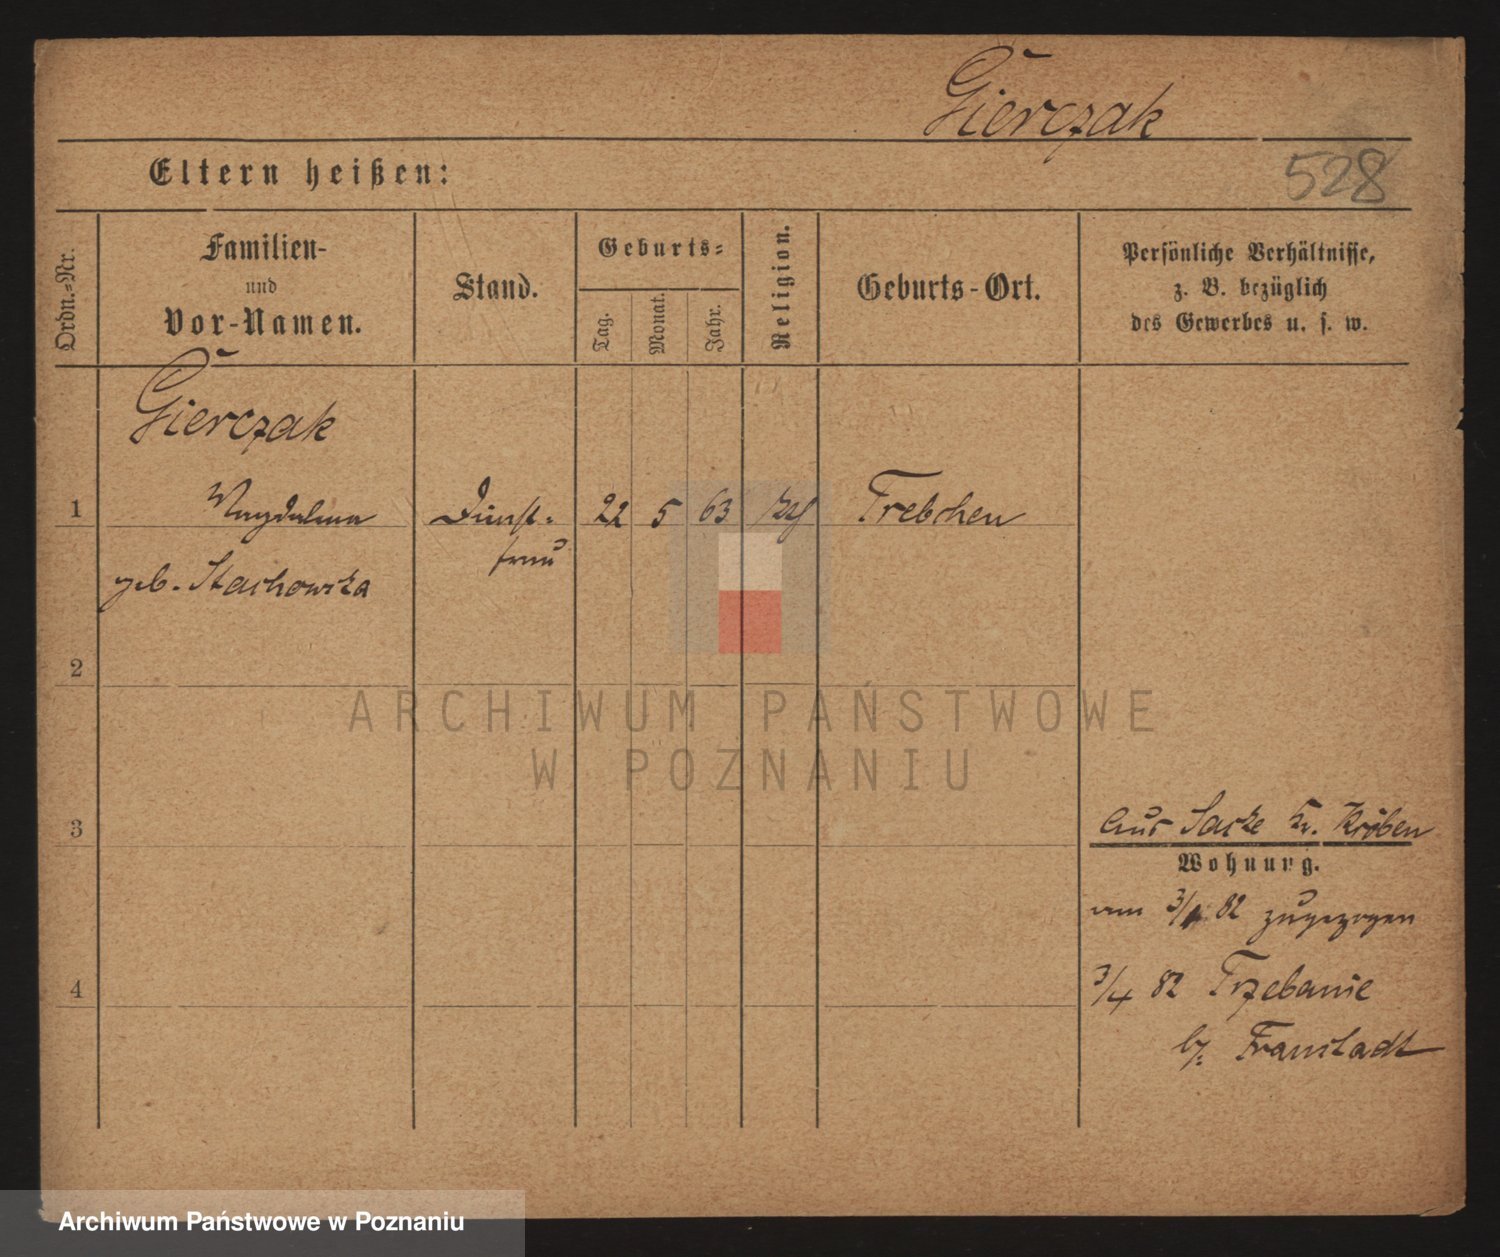 Gierczak
528
Eltern heißen:
Ordn.-Nr.
Familien-
und
Vor-Namen.
Stand.
Geburts-
Tag.
Monat.
Jahr.
Religion.
Geburts-Ort.
Persönliche Verhältnisse,
z. B. bezüglich
des Gewerbes u. s. w.
Gierczak
1 Magdalena Dienst- 22 5 63 Trebchen
frau
geb. Stachowska
2
ARCHIWUM PAŃSTWOWE
W POZNANIU
3
Aus Sacke Kr. Kröben
Wohnung.
am 82 zugezogen
4
3/4 82 Trzebanie
b/. Fraustadt
Archiwum Państwowe w Poznaniu